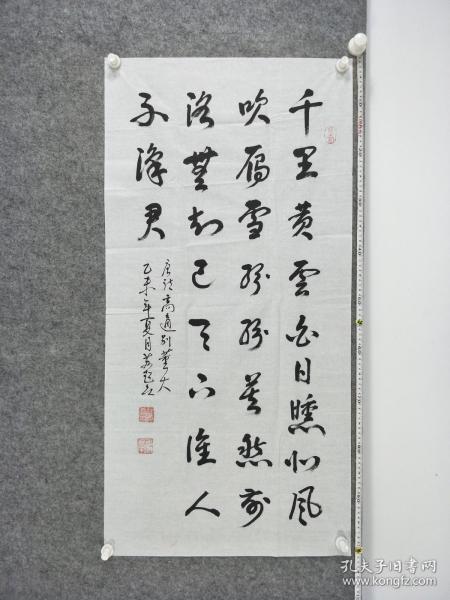 千里黄雲白日曛北風
吹雁雪紛紛莫愁前
路無知己天下誰人
不識君
唐詩高適别董大
乙未年夏月
孔夫子旧书网
www.kongfz.com